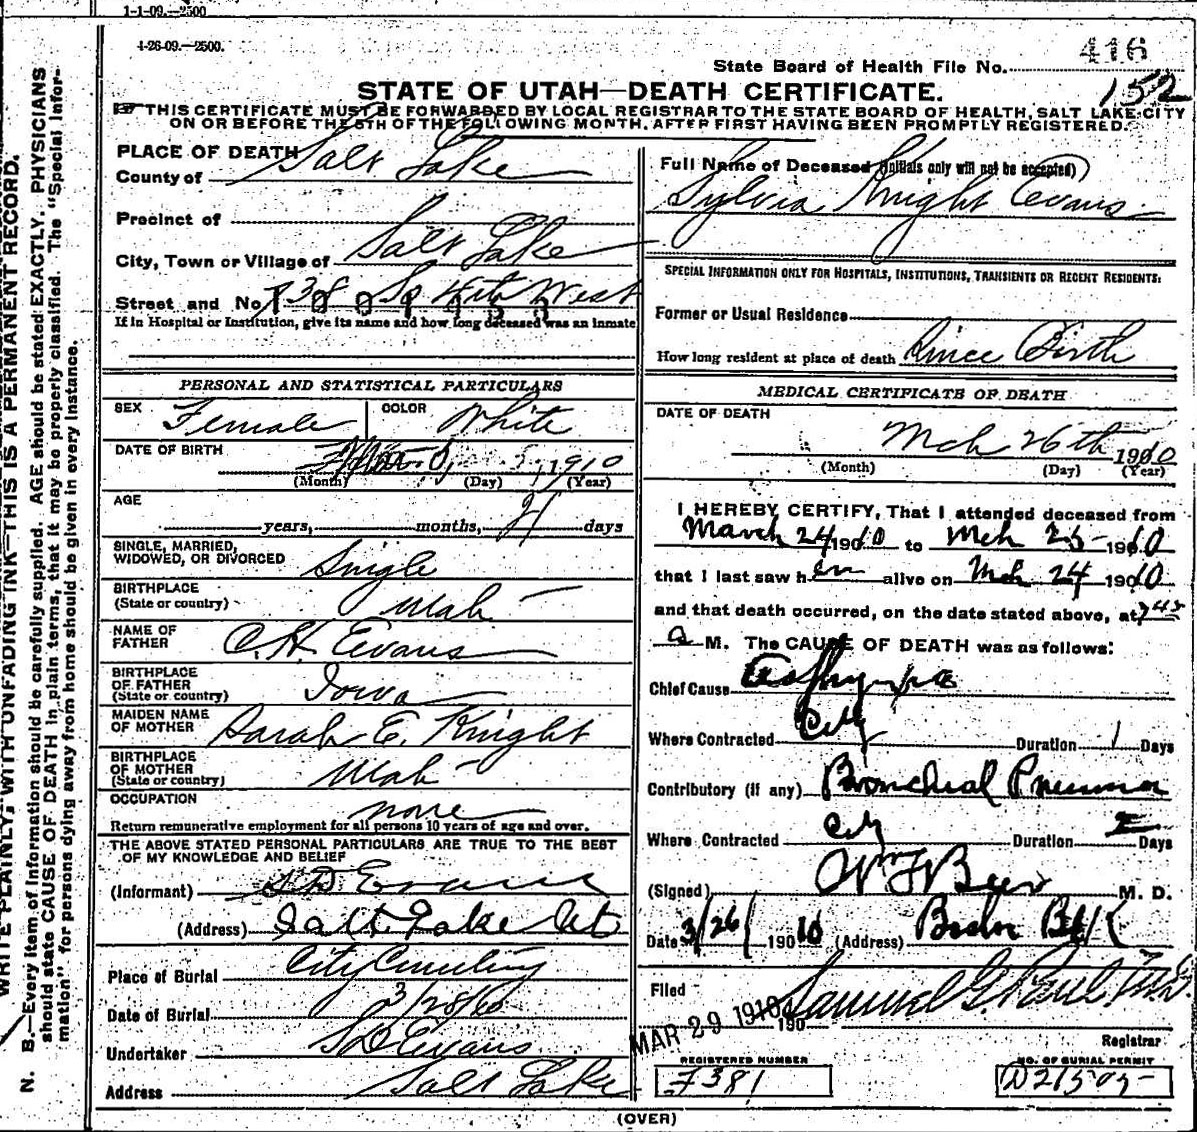 1-1-09.—2500
4-26-09.—2500.
416
State Board of Health File No.
152
STATE OF UTAH—DEATH CERTIFICATE.
THIS CERTIFICATE MUST BE FORWARDED BY LOCAL REGISTRAR TO THE STATE BOARD OF HEALTH, SALT LAKE CITY
ON OR BEFORE THE 5TH OF THE FOLLOWING MONTH, AFTER FIRST HAVING BEEN PROMPTLY REGISTERED.
WRITE PLAINLY, WITH UNFADING INK—THIS IS A PERMANENT RECORD.
N. B.—Every item of information should be carefully supplied. AGE should be stated EXACTLY. PHYSICIANS
should state CAUSE OF DEATH in plain terms, that it may be properly classified. The "Special Infor-
mation" for persons dying away from home should be given in every instance.
PLACE OF DEATH
County of Salt Lake
Precinct of
City, Town or Village of Salt Lake
Street and No. 738 So 4th West
If in Hospital or Institution, give its name and how long deceased was an inmate
PERSONAL AND STATISTICAL PARTICULARS
SEX Female COLOR White
DATE OF BIRTH 5, 1910
(Month) (Day) (Year)
AGE
years, months, 21 days
SINGLE, MARRIED,
WIDOWED, OR DIVORCED Single
BIRTHPLACE
(State or country) Utah
NAME OF
FATHER C. H. Evans
BIRTHPLACE
OF FATHER
(State or country) Iowa
MAIDEN NAME
OF MOTHER Sarah E. Knight
BIRTHPLACE
OF MOTHER
(State or country) Utah
OCCUPATION none
Return remunerative employment for all persons 10 years of age and over.
THE ABOVE STATED PERSONAL PARTICULARS ARE TRUE TO THE BEST
OF MY KNOWLEDGE AND BELIEF
(Informant) S D Evans
(Address) Salt Lake Ut
Place of Burial City Cemetery
Date of Burial 3/28/10
Undertaker S D Evans
Address Salt Lake
Full Name of Deceased (Initials only will not be accepted)
Sylvia Knight Evans
SPECIAL INFORMATION ONLY FOR HOSPITALS, INSTITUTIONS, TRANSIENTS OR RECENT RESIDENTS:
Former or Usual Residence
How long resident at place of death Since Birth
MEDICAL CERTIFICATE OF DEATH
DATE OF DEATH
Mch 26th 1910
(Month) (Day) (Year)
I HEREBY CERTIFY, That I attended deceased from
March 24 1910 to Mch 25 1910
that I last saw her alive on Mch 24 1910
and that death occurred, on the date stated above, at 7 45
a M. The CAUSE OF DEATH was as follows:
Chief Cause
Where Contracted City Duration 1 Days
Contributory (if any) Bronchial Pneumonia
Where Contracted City Duration 2 Days
(Signed) Wm F Beer M. D.
Date 3/26/ 1910 (Address)
Filed MAR 29 1910 190 Samuel G. Paul M.D.
Registrar
REGISTERED NUMBER
F381
NO. OF BURIAL PERMIT
(OVER)